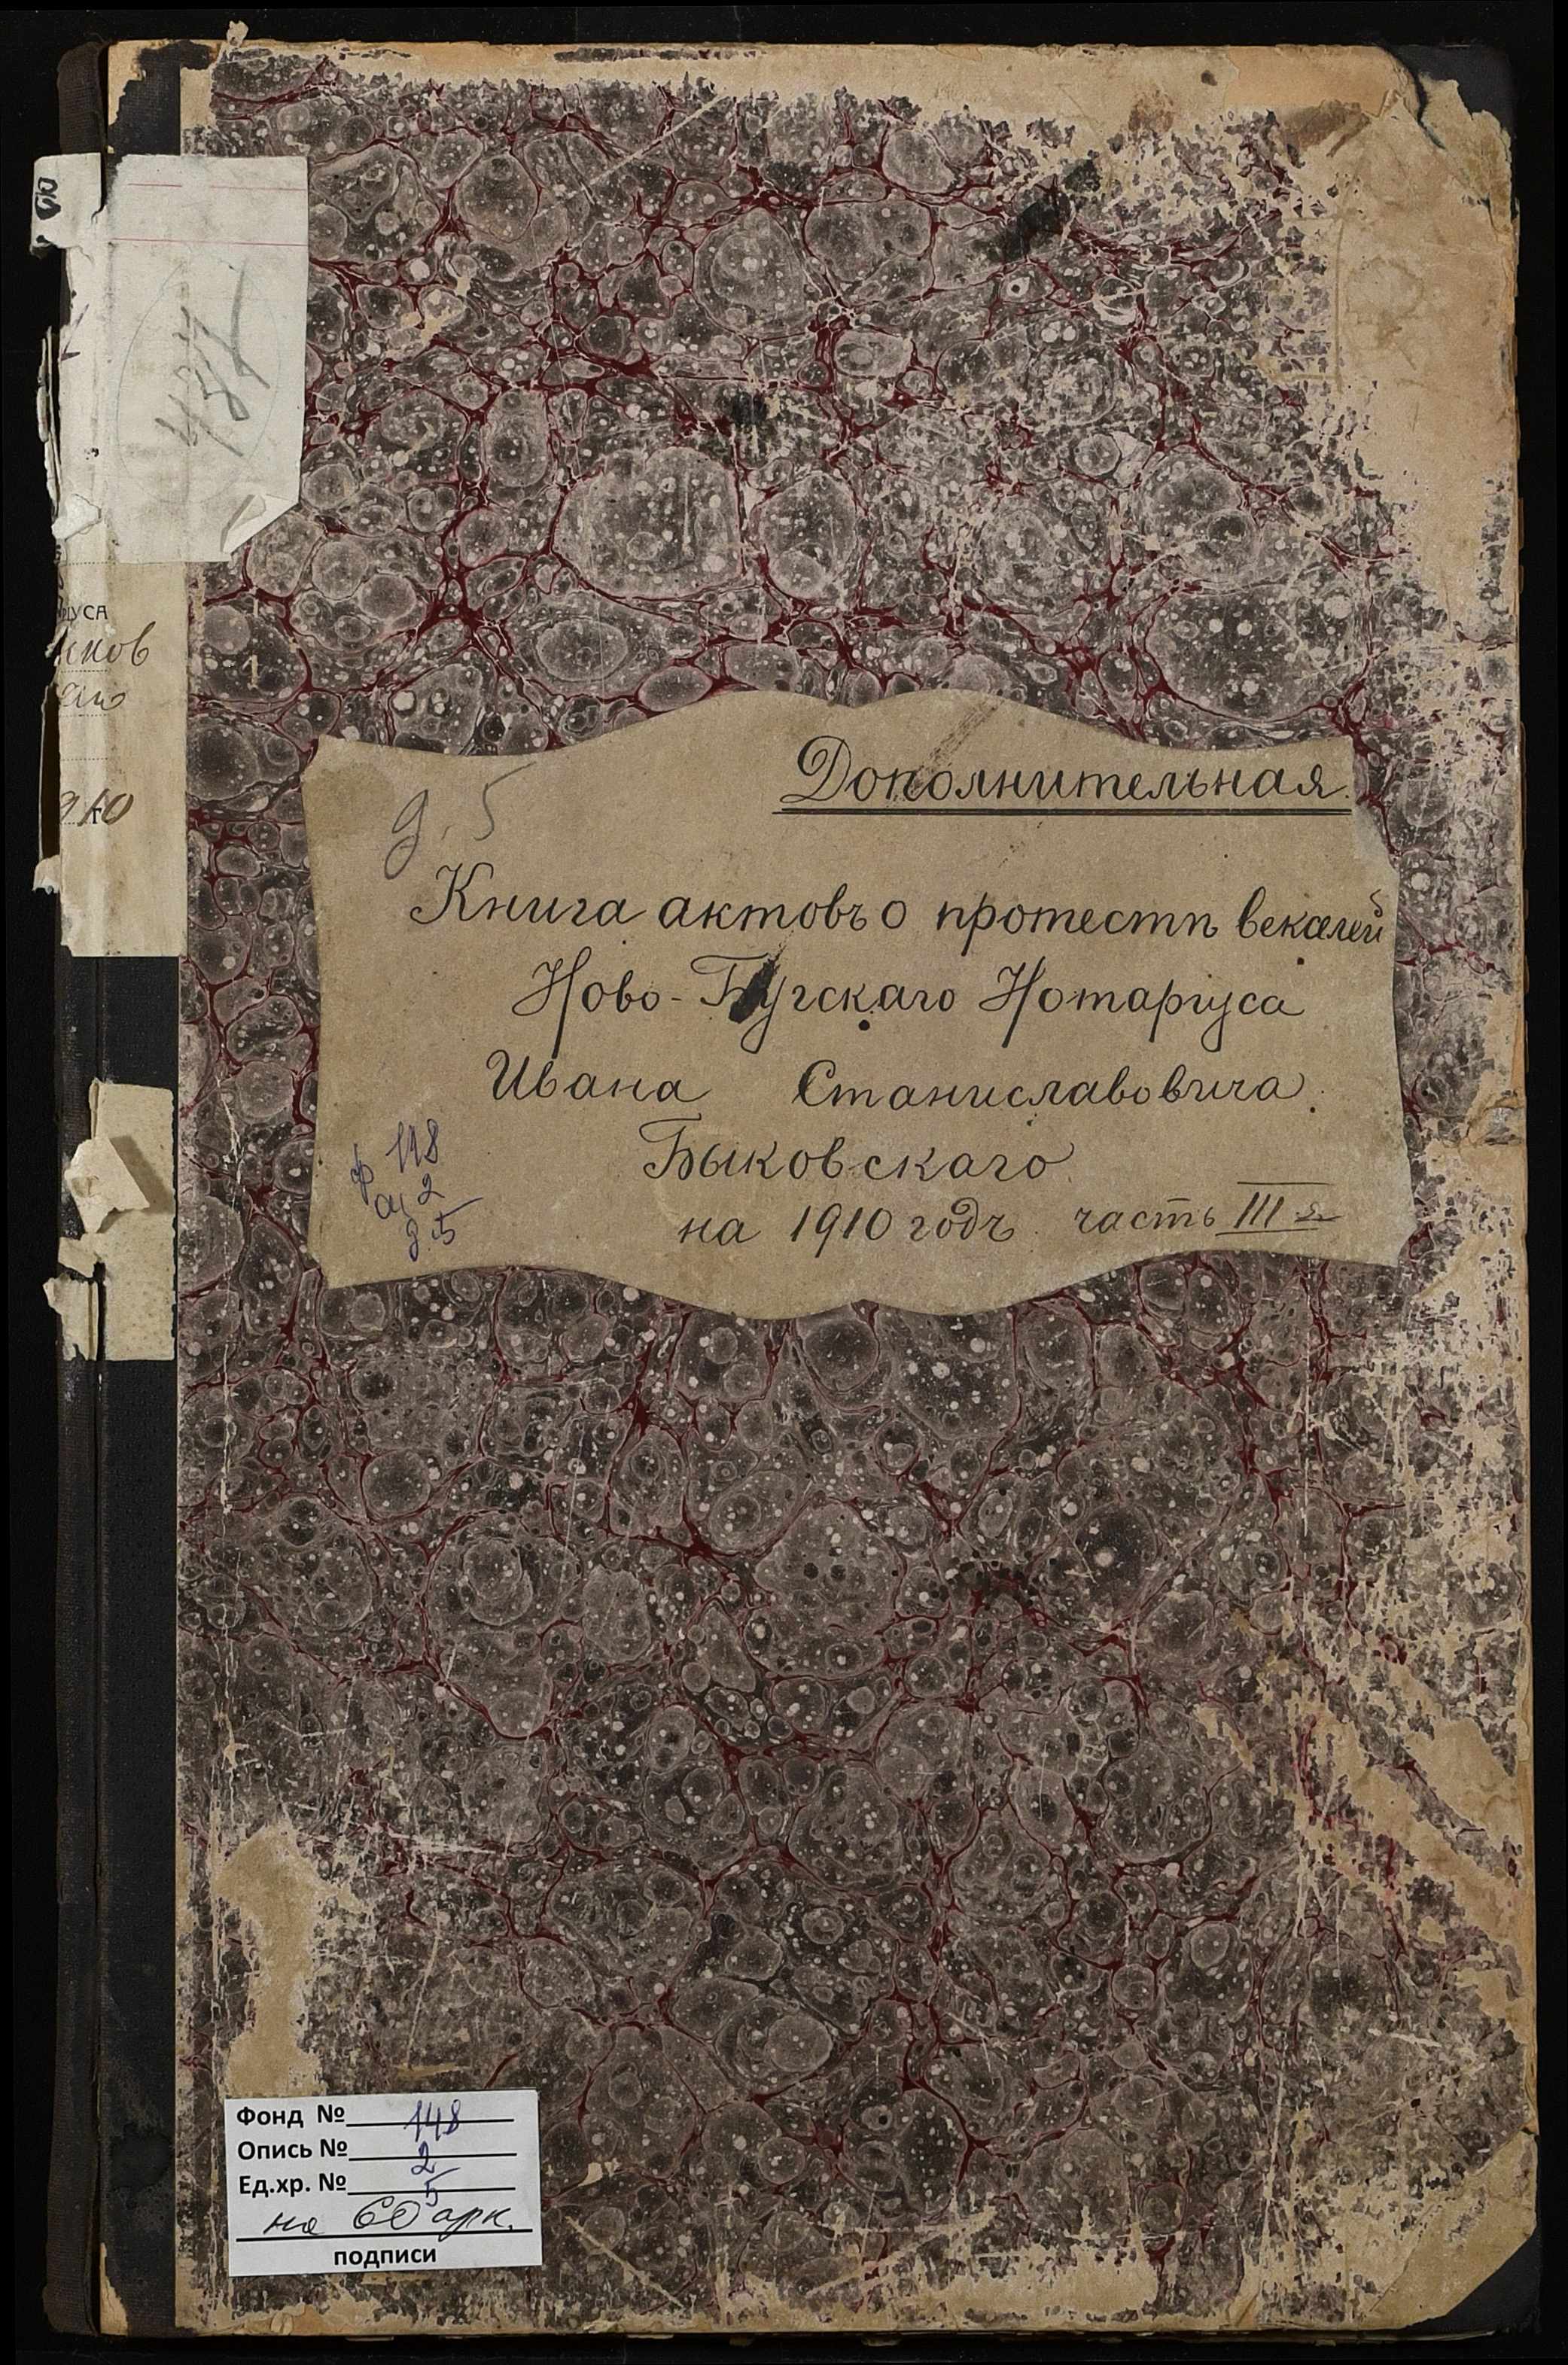 457
ріуса
910
Дополнительная.
д. 5
Книга актовъ о протестѣ векселей
Ново-Бугскаго Нотаріуса
Ивана Станиславовича
Быковскаго
на 1910 годъ часть III я
ф 148
оп 2
д. 5
Фонд № 148
Опись № 2
Ед.хр. № 5
на 60 арк.
подписи